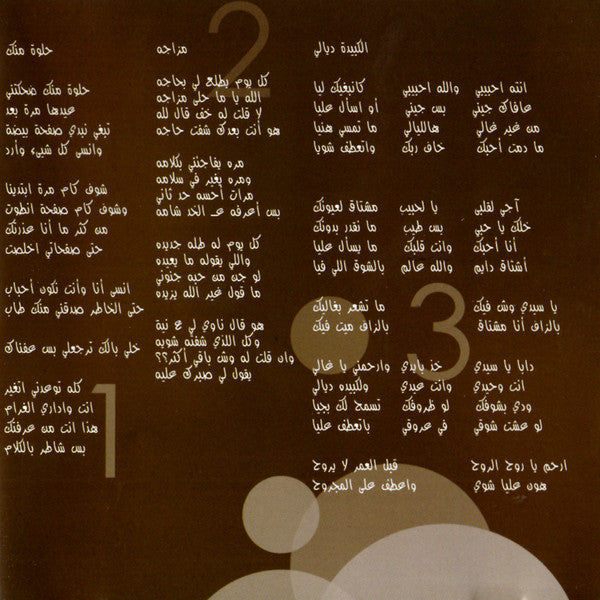 حلوة منك
حلوة منك ضحكتني
عيدها مرة بعد
تبغي نبدي صفحة بيضة
وانسى كل شيء وأرد
شوف كام مرة ابتدينا
وشوف كام صفحة انطوت
من كثر ما أنا عذرتك
حتى صفحاتي اخلصت
انسى أنا وأنت نكون أحباب
حتى الخاطر صدقني منك طاب
خلي بالك ترجعلي بس عفناك
كله توعدني اتغير
انت واداري الغرام
هذا انت من عرفتك
بس شاطر بالكلام
1
مزاجه
كل يوم يطلع لي بحاجه
الله يا ما حلى مزاجه
لا قلت لو خف قال لله
هو أنت بعدك شفت حاجه
مره يفاجئني بكلامه
ومره يغير في سلامه
مرات أحسه حد ثاني
بس أعرفه عـ الخد شامه
كل يوم له طله جديده
واللي يقوله ما يعيده
لو جن من حبه جنوني
ما قول غير الله يزيده
هو قال ناوي لي ع نية
وكل اللذي شفته شويه
وان قلت له وش باقي أكثر؟؟
يقول لي صبرك عليه
2
الكبيدة ديالي
انته احبيبي والله احبيبي كانبغيك ليا
عافاك جيني بس جيني أو اسأل عليا
من غير غالي هالليالي ما تمسي هنيا
ما دمت أحبك خاف ربك واتعطف شويا
آجي لقلبي يا لحبيب مشتاق لعيونك
خلك يا حبي بس طيب ما نقدر بدونك
أنا أحبك وانت قلبك ما يسأل عليا
أشتاق دايم والله عالم بالشوق اللي فيا
يا سيدي وش فيك ما تشعر بغاليك
بالزاف أنا مشتاق بالزاف ميت فيك
دابا يا سيدي خذ بايدي وارحمني يا غالي
انت وحيدي وانت عيدي ولكبيده ديالي
ودي بشوفك لو ظروفك تسمح لك بجيا
لو عشت شوقي في عروقي باتعطف عليا
ارحم يا روح الروح قبل العمر لا يروح
هون عليا شوي واعطف على المجروح
3